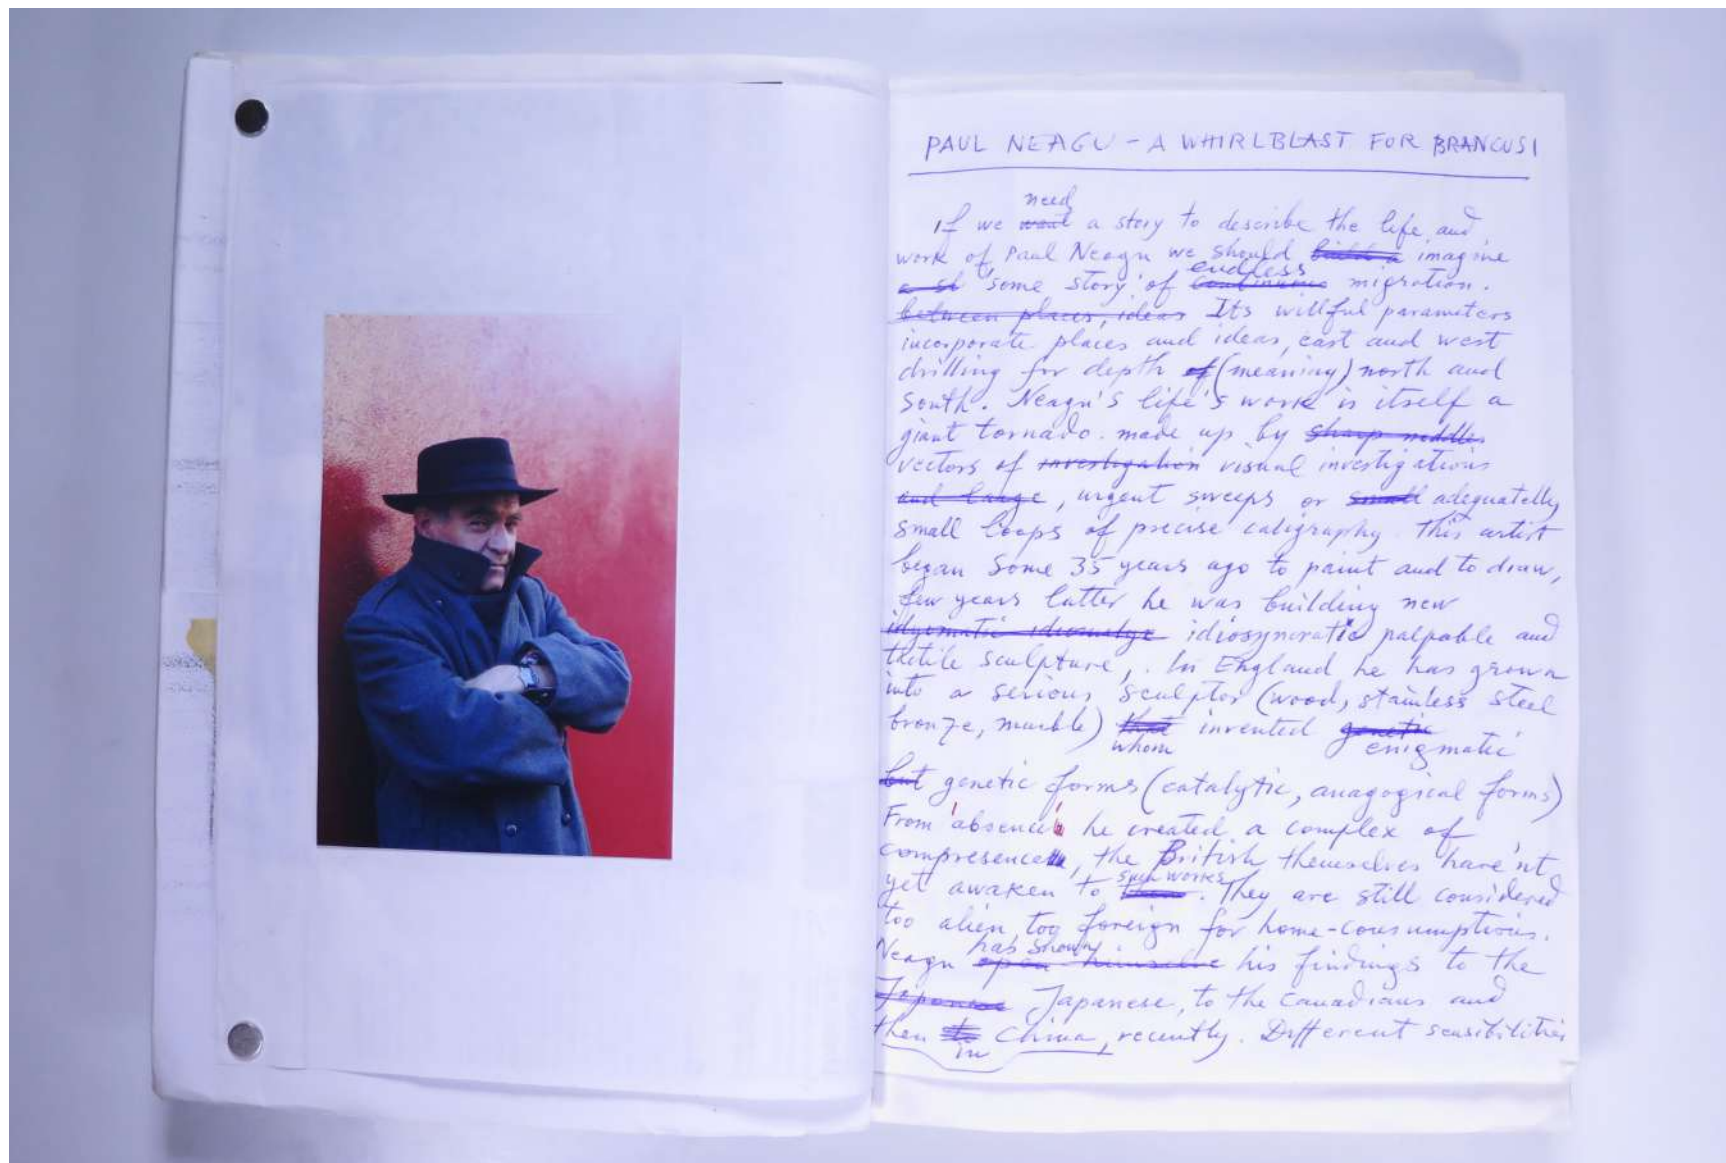 PAUL NEAGU – A WHIRLBLAST FOR BRANCUSI
need
If we want a story to describe the life and
work of Paul Neagu we should build a imagine
endless
a st 'some story' of continuous migration.
between places, ideas Its willful parameters
incorporate places and ideas, east and west
drilling for depth of (meaning) north and
south. Neagu's life's work is itself a
giant tornado. made up by sharp
vectors of investigation visual investigations
and large, urgent sweeps or small adequatelly
small loops of precise caligraphy. This artist
began some 35 years ago to paint and to draw,
few years latter he was building new
idiosyncratic palpable and
tactile sculpture,. In England he has grown
into a serious sculptor (wood, stainless steel
bronze, marble) that invented genetic
whom enigmatic
but genetic forms (catalytic, anagogical forms)
From 'absence' he created a complex of
compresence, the British themselves have'nt
such works
yet awaken to them. They are still considered
too alien too foreign for home-consumptions.
has shown
Neagu open himselve his findings to the
Japanese Japanese, to the Canadians and
then to China, recently. Different sensibilities
in